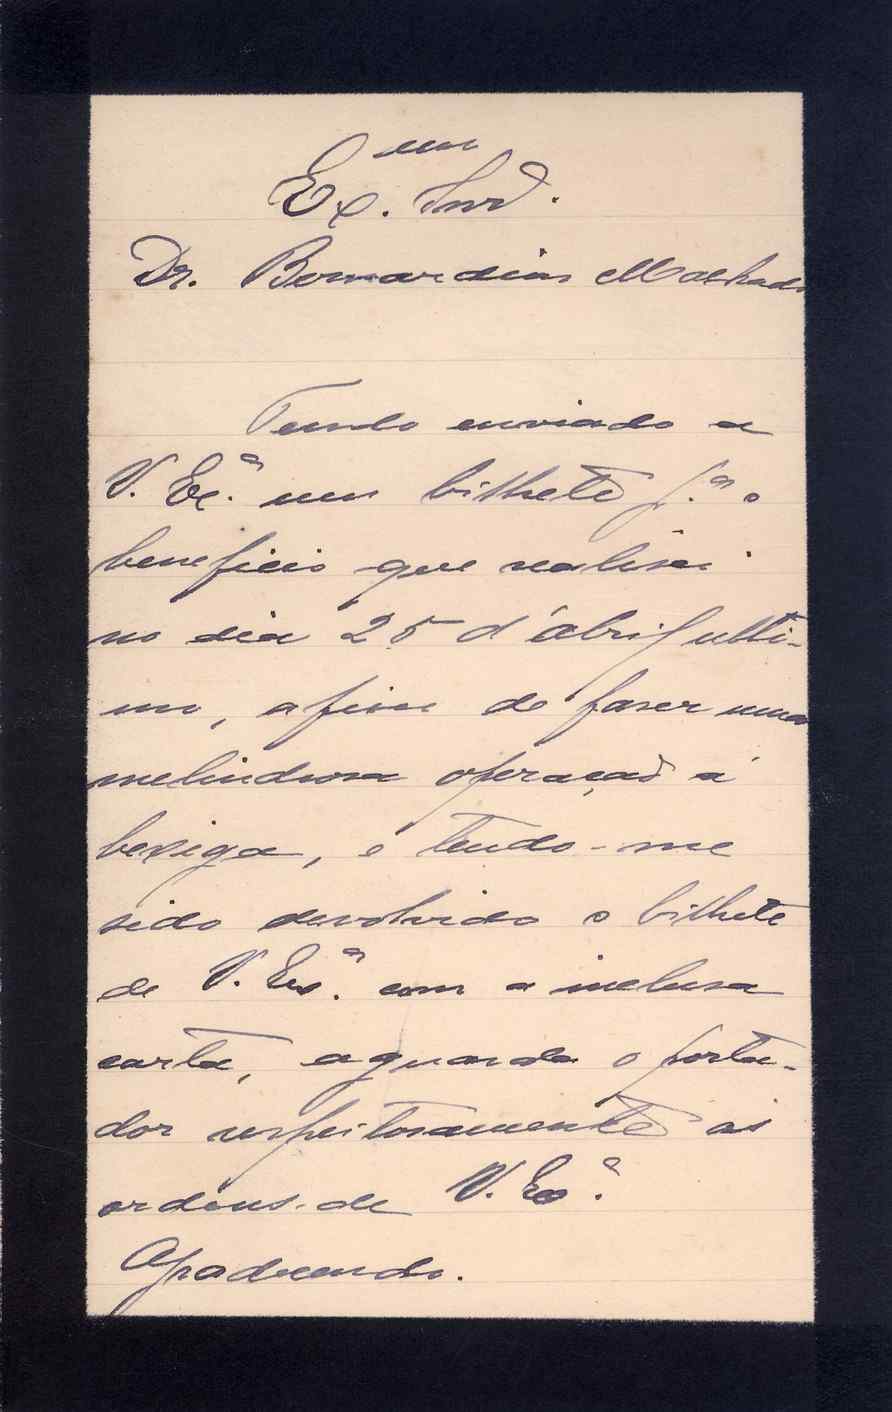 Ex.mo Snr.
Dr. Bernardino Machado
Tendo enviado a
V. Ex.ª um bilhete p.ª o
beneficio que realisei
no dia 25 d'abril ulti-
mo, afim de faser uma
melindrosa operação á
bexiga, e tendo-me
sido devolvido o bilhete
de V. Ex.ª com a inclusa
carta, aguarda o porta-
dor respeitosamente as
ordens de V. Ex.ª
Agradecendo.